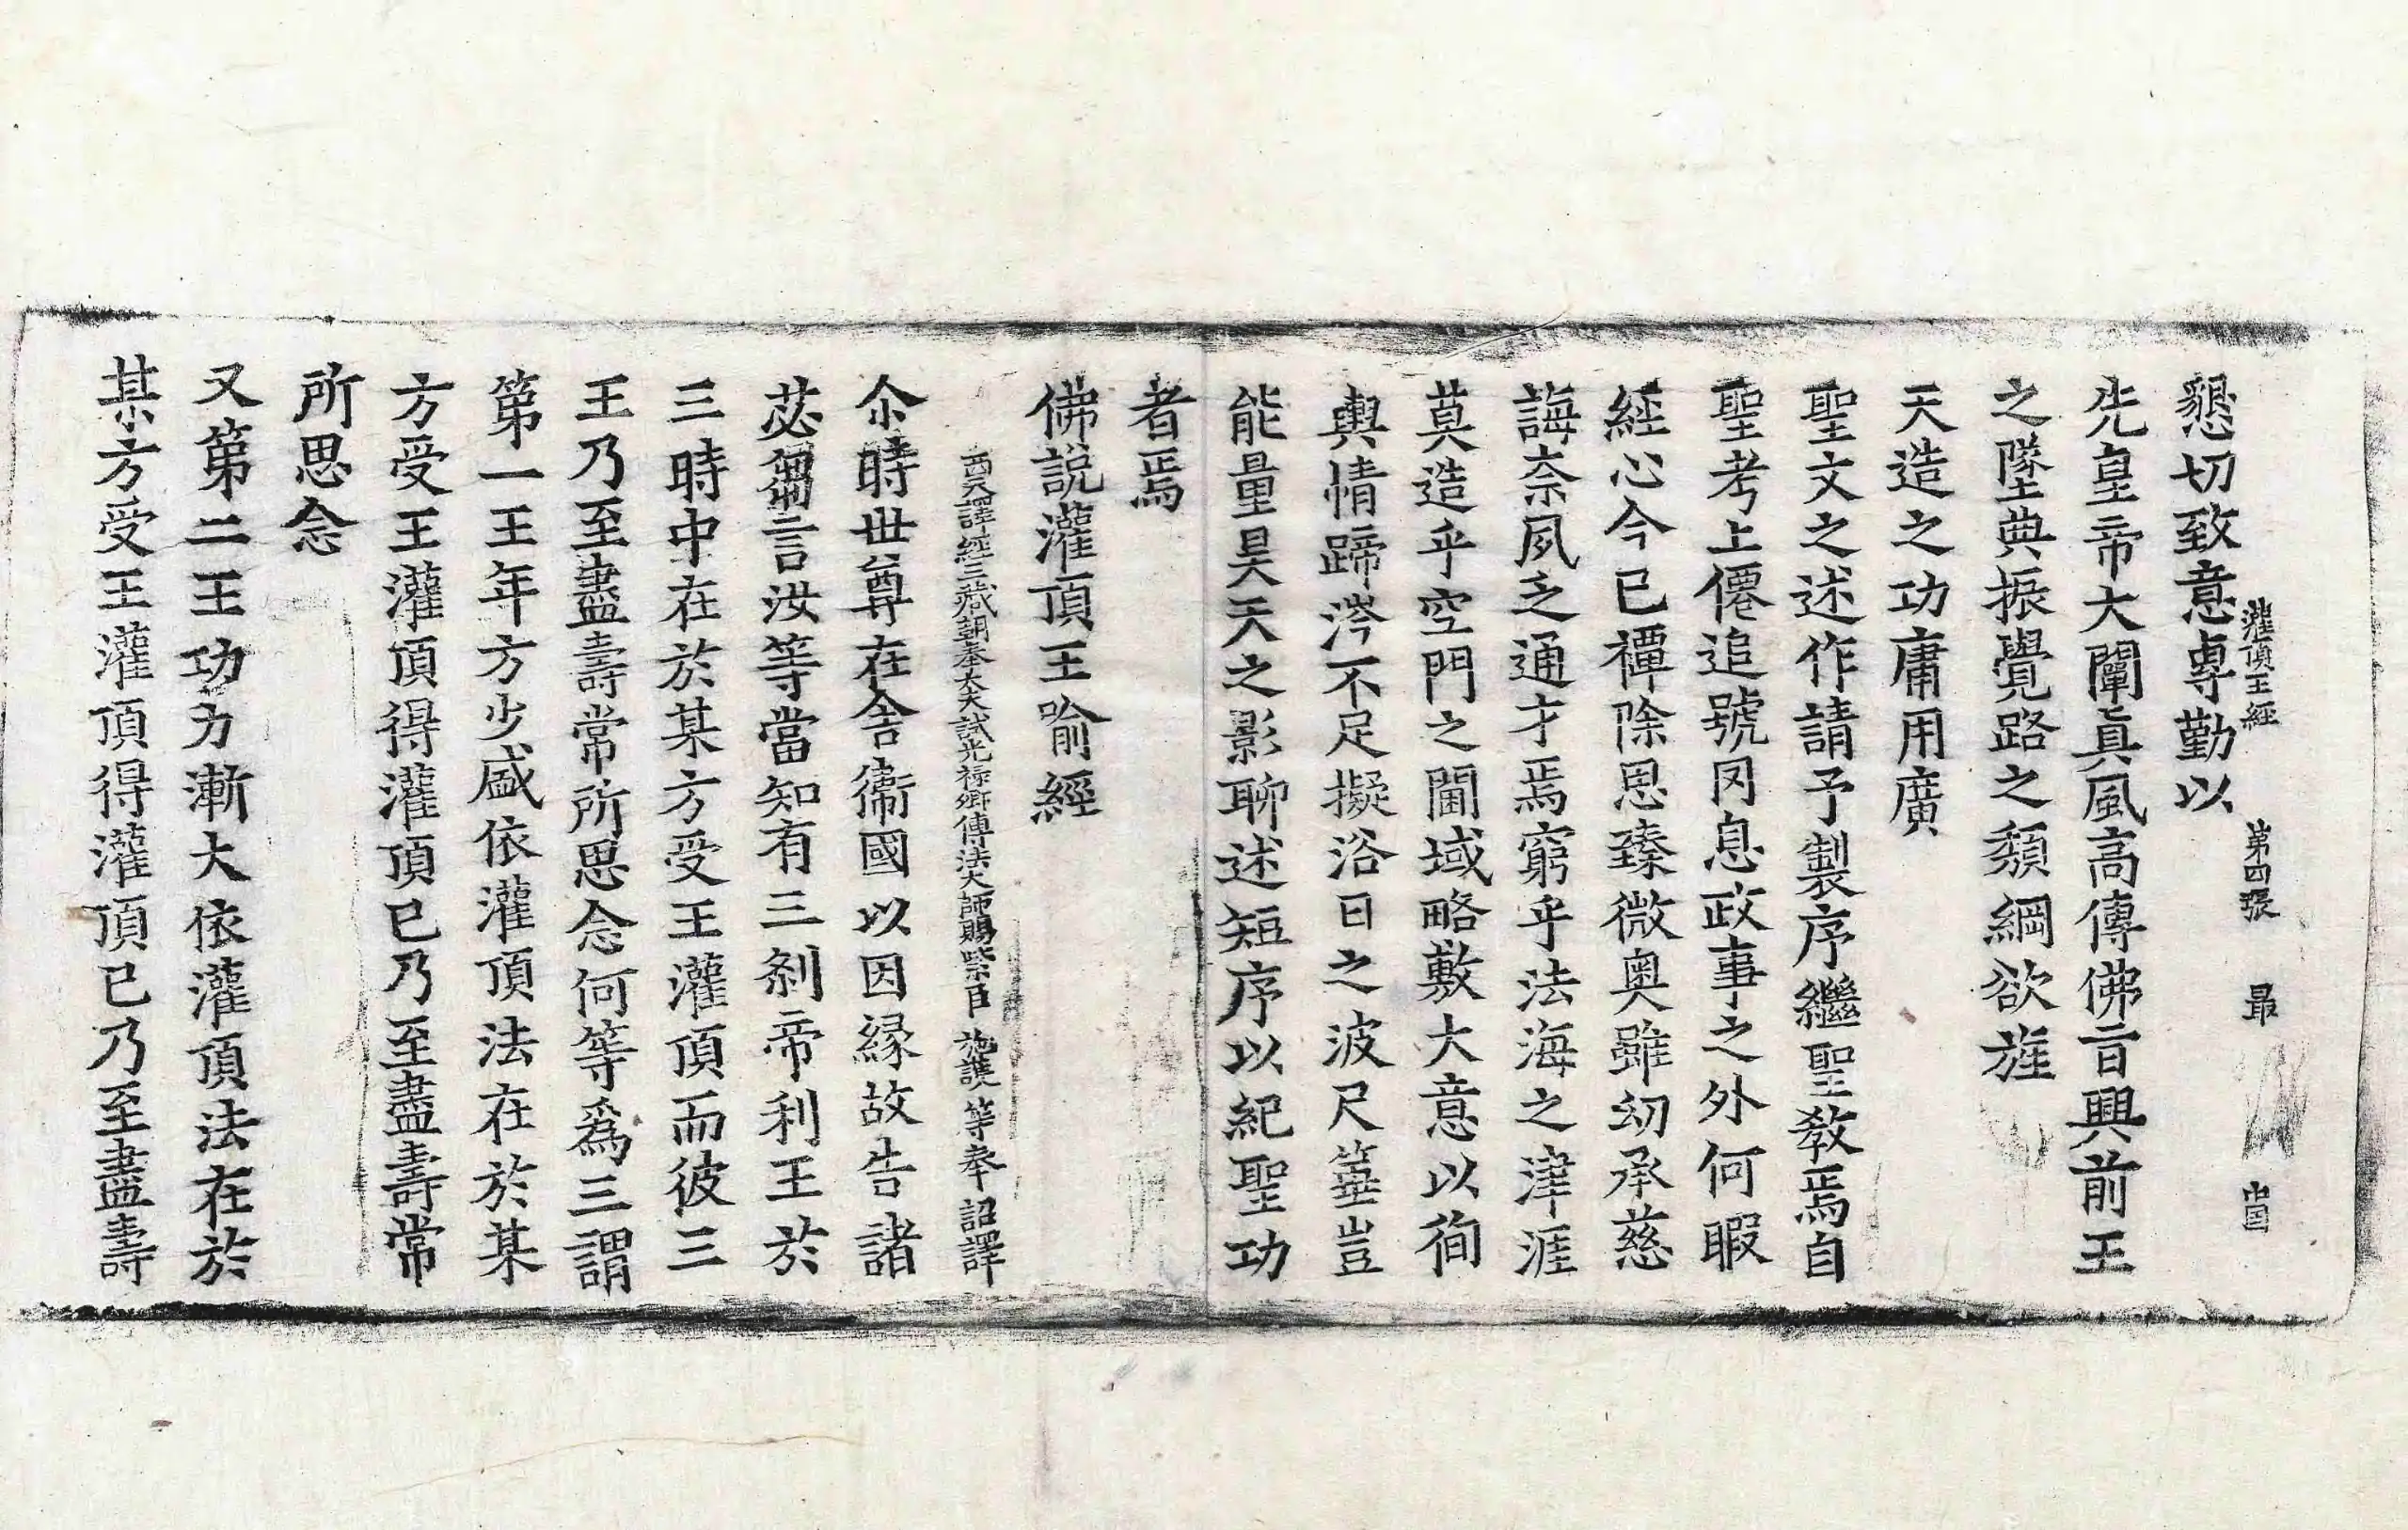 懇切致意專勤以
灌頂王經 第四張 最
先皇帝大闡真風高傳佛旨興前王
之墜典振覺路之頹綱欲旌
天造之功庸用廣
聖文之述作請予製序繼聖教焉自
聖考上僊追號罔息政事之外何暇
經心今已禫除恩臻微奧雖紉承慈
誨奈夙乏通才焉窮乎法海之津涯
莫造乎空門之閫域略敷大意以徇
輿情蹄涔不足擬浴日之波尺箠豈
能量昊天之影聊述短序以紀聖功
者焉
佛説灌頂王喻經
西天譯經三藏朝奉大夫試光祿卿傳法大師賜紫臣施護等奉 詔譯
尒時世尊在舍衞國以因縁故告諸
苾芻言汝等當知有三剎帝利王於
三時中在於某方受王灌頂而彼三
王乃至盡壽常所思念何等爲三謂
第一王年方少盛依灌頂法在於某
方受王灌頂得灌頂已乃至盡壽常
所思念
又第二王功力漸大依灌頂法在於
某方受王灌頂得灌頂已乃至盡壽